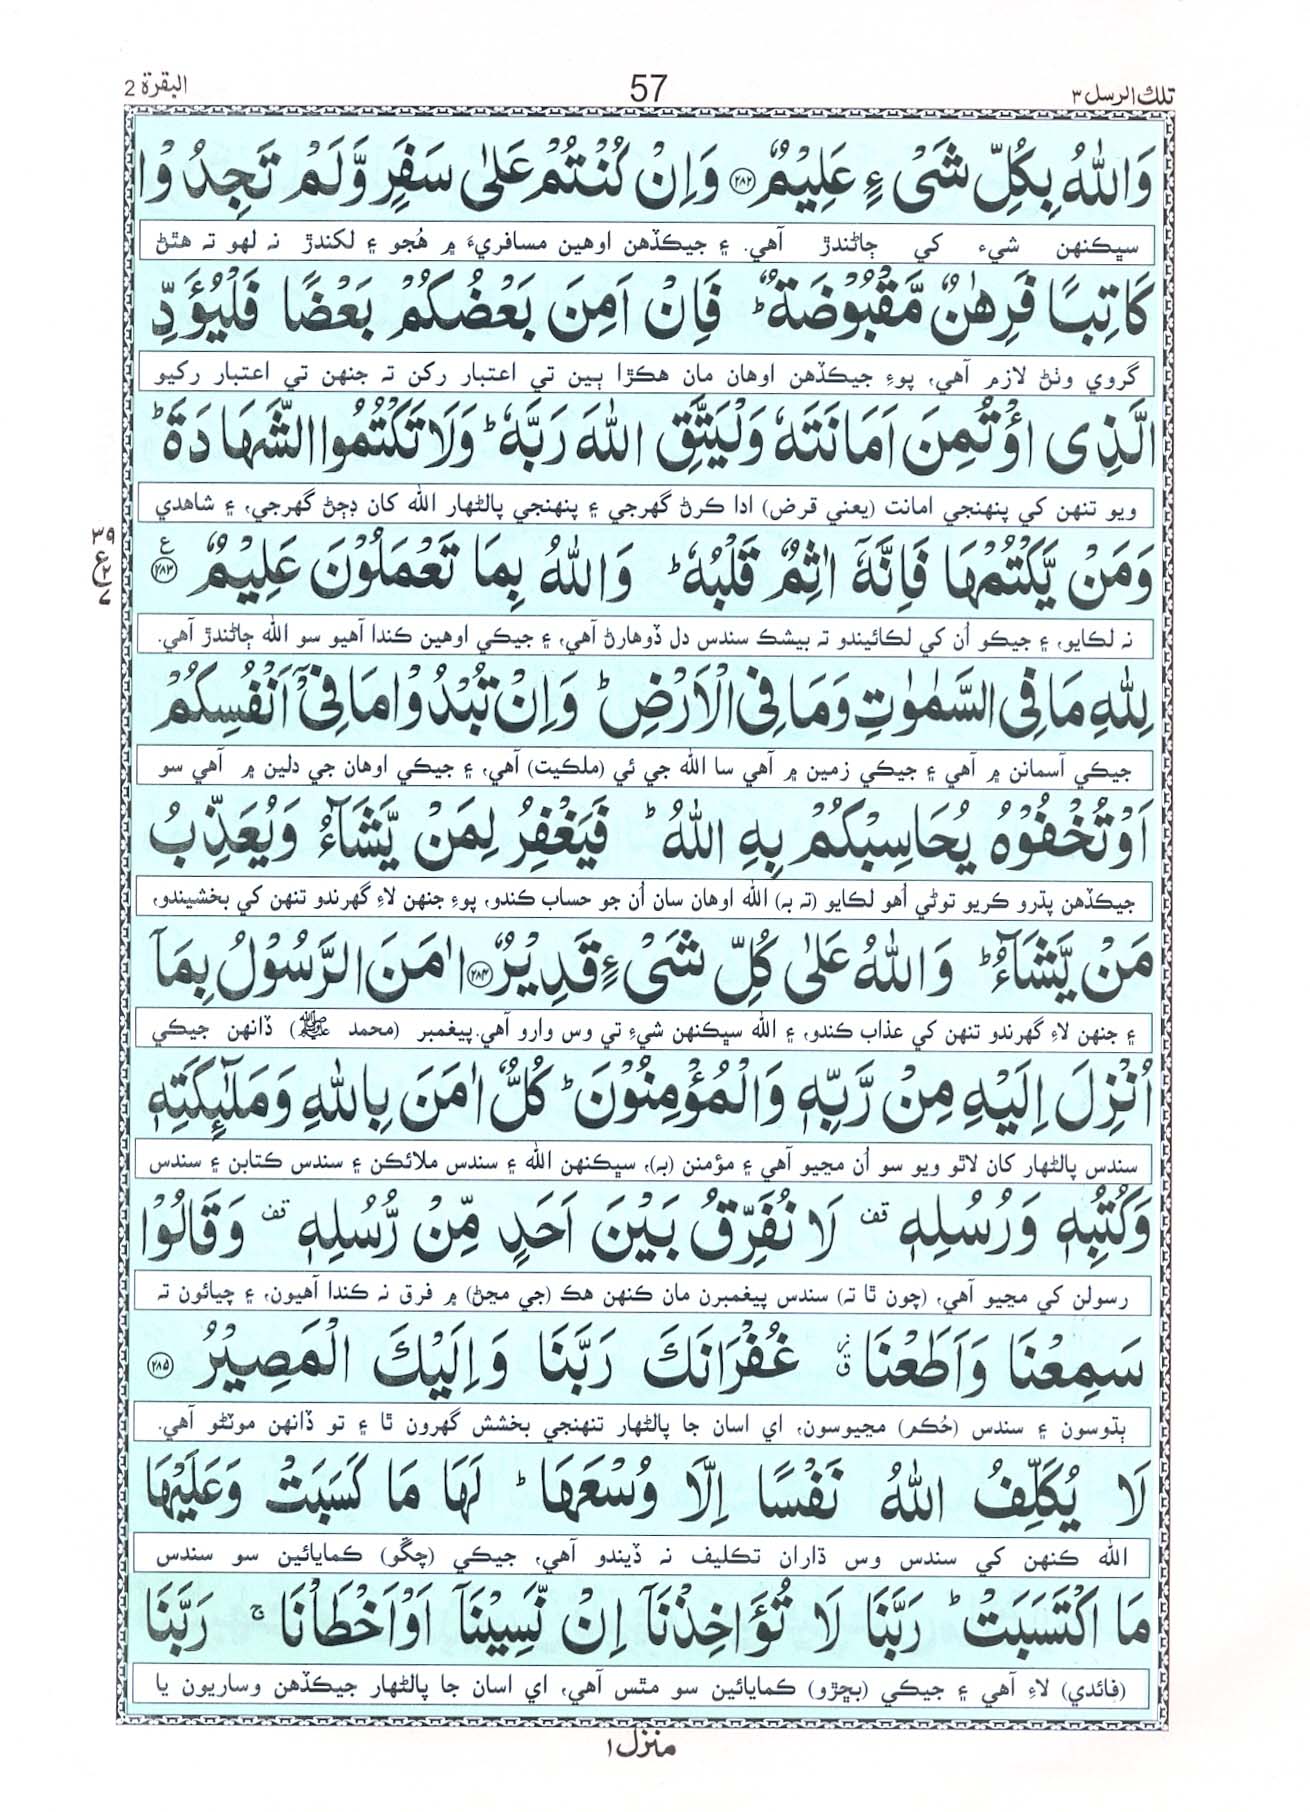 تلك الرسل ٣
57
البقرة 2
وَاللّٰهُ بِكُلِّ شَیْءٍ عَلِیْمٌ ﴿۲۸۲﴾ وَاِنْ كُنْتُمْ عَلٰی سَفَرٍ وَّلَمْ تَجِدُوْا
سڀڪنهن شيء کي ڄاڻندڙ آهي. ۽ جيڪڏهن اوهين مسافريءَ ۾ هُجو ۽ لکندڙ نہ لهو تہ هٿڻ
كَاتِبًا فَرِهٰنٌ مَّقْبُوْضَةٌ ؕ فَاِنْ اَمِنَ بَعْضُكُمْ بَعْضًا فَلْیُؤَدِّ
گروي وٺڻ لازم آهي، پوءِ جيڪڏهن اوهان مان هڪڙا ٻين تي اعتبار رکن تہ جنهن تي اعتبار رکيو
الَّذِی اؤْتُمِنَ اَمَانَتَهٗ وَلْیَتَّقِ اللّٰهَ رَبَّهٗ ؕ وَلَا تَكْتُمُوا الشَّهَادَةَ ؕ
ويو تنهن کي پنهنجي امانت (يعني قرض) ادا ڪرڻ گهرجي ۽ پنهنجي پالڻهار الله کان ڊڄڻ گهرجي، ۽ شاهدي
وَمَنْ یَّكْتُمْهَا فَاِنَّهٗۤ اٰثِمٌ قَلْبُهٗ ؕ وَاللّٰهُ بِمَا تَعْمَلُوْنَ عَلِیْمٌ ﴿۲۸۳﴾ ع
٣٩
ع ٢
٧
نہ لڪايو، ۽ جيڪو اُن کي لڪائيندو تہ بيشڪ سندس دل ڏوهارڻ آهي، ۽ جيڪي اوهين ڪندا آهيو سو الله ڄاڻندڙ آهي.
لِلّٰهِ مَا فِی السَّمٰوٰتِ وَمَا فِی الْاَرْضِ ؕ وَاِنْ تُبْدُوْا مَا فِیْۤ اَنْفُسِكُمْ
جيڪي آسمانن ۾ آهي ۽ جيڪي زمين ۾ آهي سا الله جي ئي (ملڪيت) آهي، ۽ جيڪي اوهان جي دلين ۾ آهي سو
اَوْ تُخْفُوْهُ یُحَاسِبْكُمْ بِهِ اللّٰهُ ؕ فَیَغْفِرُ لِمَنْ یَّشَآءُ وَیُعَذِّبُ
جيڪڏهن پڌرو ڪريو توڻي اُهو لڪايو (تہ بہ) الله اوهان سان اُن جو حساب ڪندو، پوءِ جنهن لاءِ گهرندو تنهن کي بخشيندو،
مَنْ یَّشَآءُ ؕ وَاللّٰهُ عَلٰی كُلِّ شَیْءٍ قَدِیْرٌ ﴿۲۸۴﴾ اٰمَنَ الرَّسُوْلُ بِمَاۤ
۽ جنهن لاءِ گهرندو تنهن کي عذاب ڪندو، ۽ الله سڀڪنهن شيءِ تي وس وارو آهي. پيغمبر (محمد ﷺ) ڏانهن جيڪي
اُنْزِلَ اِلَیْهِ مِنْ رَّبِّهٖ وَالْمُؤْمِنُوْنَ ؕ كُلٌّ اٰمَنَ بِاللّٰهِ وَمَلٰٓئِكَتِهٖ
سندس پالڻهار کان لاٿو ويو سو اُن مڃيو آهي ۽ مؤمنن (بہ)، سڀڪنهن الله ۽ سندس ملائڪن ۽ سندس ڪتابن ۽ سندس
وَكُتُبِهٖ وَرُسُلِهٖ قف لَا نُفَرِّقُ بَیْنَ اَحَدٍ مِّنْ رُّسُلِهٖ قف وَقَالُوْا
رسولن کي مڃيو آهي، (چون ٿا تہ) سندس پيغمبرن مان ڪنهن هڪ (جي مڃڻ) ۾ فرق نہ ڪندا آهيون، ۽ چيائون تہ
سَمِعْنَا وَاَطَعْنَا غُفْرَانَكَ رَبَّنَا وَاِلَیْكَ الْمَصِیْرُ ﴿۲۸۵﴾
ٻڌوسون ۽ سندس (حُڪم) مڃيوسون، اي اسان جا پالڻهار تنهنجي بخشش گهرون ٿا ۽ تو ڏانهن موٽڻو آهي.
لَا یُكَلِّفُ اللّٰهُ نَفْسًا اِلَّا وُسْعَهَا ؕ لَهَا مَا كَسَبَتْ وَعَلَیْهَا
الله ڪنهن کي سندس وس ڌاران تڪليف نہ ڏيندو آهي، جيڪي (چڱو) ڪمايائين سو سندس
مَا اكْتَسَبَتْ ؕ رَبَّنَا لَا تُؤَاخِذْنَاۤ اِنْ نَّسِیْنَاۤ اَوْ اَخْطَاْنَا ۚ رَبَّنَا
(فائدي) لاءِ آهي ۽ جيڪي (بڇڙو) ڪمايائين سو مٿس آهي، اي اسان جا پالڻهار جيڪڏهن وساريون يا
منزل ١